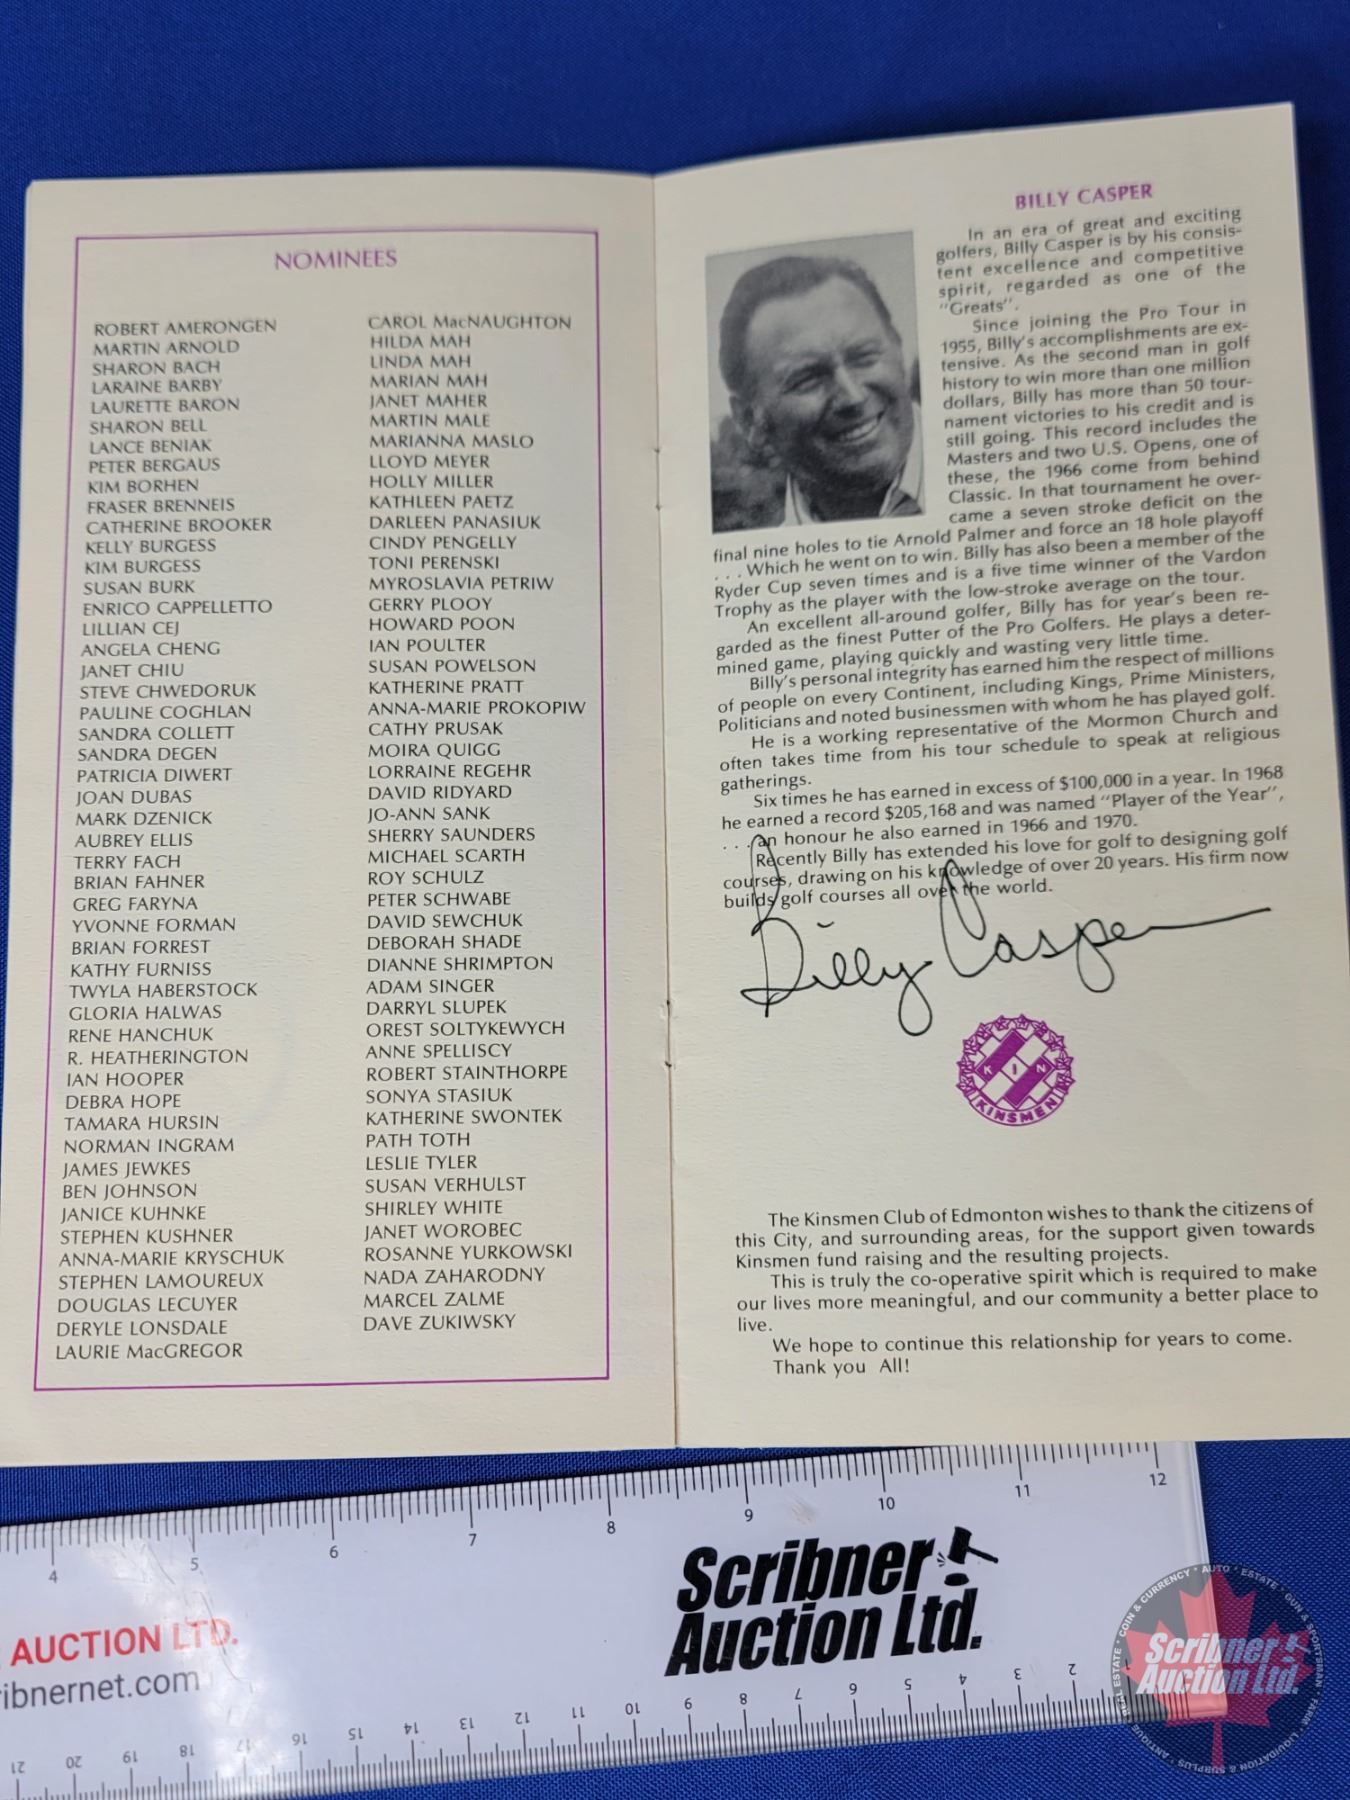 NOMINEES
ROBERT AMERONGEN
MARTIN ARNOLD
SHARON BACH
LARAINE BARBY
LAURETTE BARON
SHARON BELL
LANCE BENIAK
PETER BERGAUS
KIM BORHEN
FRASER BRENNEIS
CATHERINE BROOKER
KELLY BURGESS
KIM BURGESS
SUSAN BURK
ENRICO CAPPELLETTO
LILLIAN CEJ
ANGELA CHENG
JANET CHIU
STEVE CHWEDORUK
PAULINE COGHLAN
SANDRA COLLETT
SANDRA DEGEN
PATRICIA DIWERT
JOAN DUBAS
MARK DZENICK
AUBREY ELLIS
TERRY FACH
BRIAN FAHNER
GREG FARYNA
YVONNE FORMAN
BRIAN FORREST
KATHY FURNISS
TWYLA HABERSTOCK
GLORIA HALWAS
RENE HANCHUK
R. HEATHERINGTON
IAN HOOPER
DEBRA HOPE
TAMARA HURSIN
NORMAN INGRAM
JAMES JEWKES
BEN JOHNSON
JANICE KUHNKE
STEPHEN KUSHNER
ANNA-MARIE KRYSCHUK
STEPHEN LAMOUREUX
DOUGLAS LECUYER
DERYLE LONSDALE
LAURIE MacGREGOR
CAROL MacNAUGHTON
HILDA MAH
LINDA MAH
MARIAN MAH
JANET MAHER
MARTIN MALE
MARIANNA MASLO
LLOYD MEYER
HOLLY MILLER
KATHLEEN PAETZ
DARLEEN PANASIUK
CINDY PENGELLY
TONI PERENSKI
MYROSLAVIA PETRIW
GERRY PLOOY
HOWARD POON
IAN POULTER
SUSAN POWELSON
KATHERINE PRATT
ANNA-MARIE PROKOPIW
CATHY PRUSAK
MOIRA QUIGG
LORRAINE REGEHR
DAVID RIDYARD
JO-ANN SANK
SHERRY SAUNDERS
MICHAEL SCARTH
ROY SCHULZ
PETER SCHWABE
DAVID SEWCHUK
DEBORAH SHADE
DIANNE SHRIMPTON
ADAM SINGER
DARRYL SLUPEK
OREST SOLTYKEWYCH
ANNE SPELLISCY
ROBERT STAINTHORPE
SONYA STASIUK
KATHERINE SWONTEK
PATH TOTH
LESLIE TYLER
SUSAN VERHULST
SHIRLEY WHITE
JANET WOROBEC
ROSANNE YURKOWSKI
NADA ZAHARODNY
MARCEL ZALME
DAVE ZUKIWSKY
BILLY CASPER
In an era of great and exciting
golfers, Billy Casper is by his consis-
tent excellence and competitive
spirit, regarded as one of the
"Greats".
Since joining the Pro Tour in
1955, Billy's accomplishments are ex-
tensive. As the second man in golf
history to win more than one million
dollars, Billy has more than 50 tour-
nament victories to his credit and is
still going. This record includes the
Masters and two U.S. Opens, one of
these, the 1966 come from behind
Classic. In that tournament he over-
came a seven stroke deficit on the
final nine holes to tie Arnold Palmer and force an 18 hole playoff
. . . Which he went on to win. Billy has also been a member of the
Ryder Cup seven times and is a five time winner of the Vardon
Trophy as the player with the low-stroke average on the tour.
An excellent all-around golfer, Billy has for year's been re-
garded as the finest Putter of the Pro Golfers. He plays a deter-
mined game, playing quickly and wasting very little time.
Billy's personal integrity has earned him the respect of millions
of people on every Continent, including Kings, Prime Ministers,
Politicians and noted businessmen with whom he has played golf.
He is a working representative of the Mormon Church and
often takes time from his tour schedule to speak at religious
gatherings.
Six times he has earned in excess of $100,000 in a year. In 1968
he earned a record $205,168 and was named "Player of the Year",
. . . an honour he also earned in 1966 and 1970.
Recently Billy has extended his love for golf to designing golf
courses, drawing on his knowledge of over 20 years. His firm now
builds golf courses all over the world.
Billy Casper
KIN
KINSMEN
The Kinsmen Club of Edmonton wishes to thank the citizens of
this City, and surrounding areas, for the support given towards
Kinsmen fund raising and the resulting projects.
This is truly the co-operative spirit which is required to make
our lives more meaningful, and our community a better place to
live.
We hope to continue this relationship for years to come.
Thank you All!
4 5 6 7 8 9 10 11 12
AUCTION LTD.
ibnernet.com
Scribner
Auction Ltd.
21 20 19 18 17 16 15 14 13 12 11 10 9 8 7 6 5 4 3 2 1
COIN & CURRENCY * AUTO * ESTATE * GUN & SPORTSMAN
FARM * LIQUIDATION & SURPLUS * ANTIQUE * REAL ESTATE
Scribner
Auction Ltd.